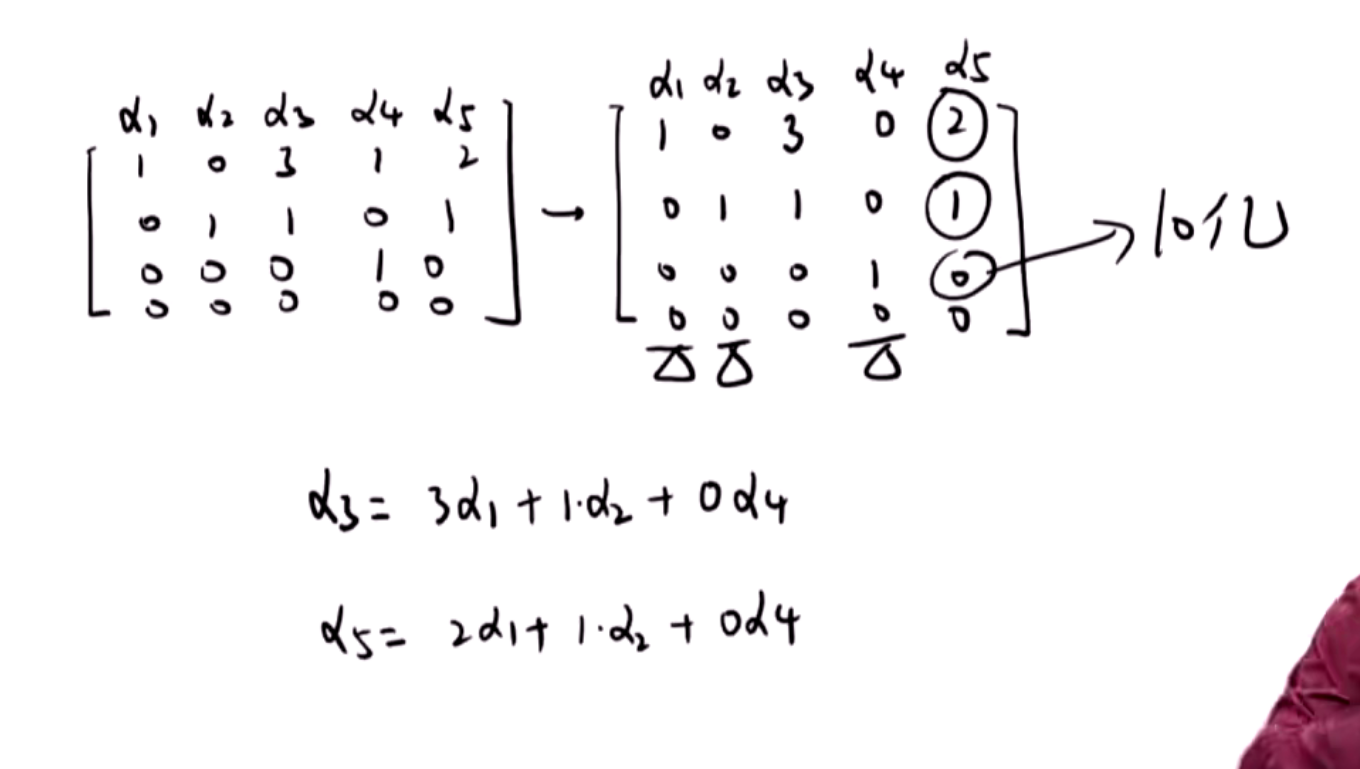 α1 α2 α3 α4 α5
1 0 3 1 2
0 1 1 0 1
0 0 0 1 0
0 0 0 0 0
→
α1 α2 α3 α4 α5
1 0 3 0 2
0 1 1 0 1
0 0 0 1 0
0 0 0 0 0
→ 10亿
α3 = 3α1 + 1·α2 + 0α4
α5 = 2α1 + 1·α2 + 0α4